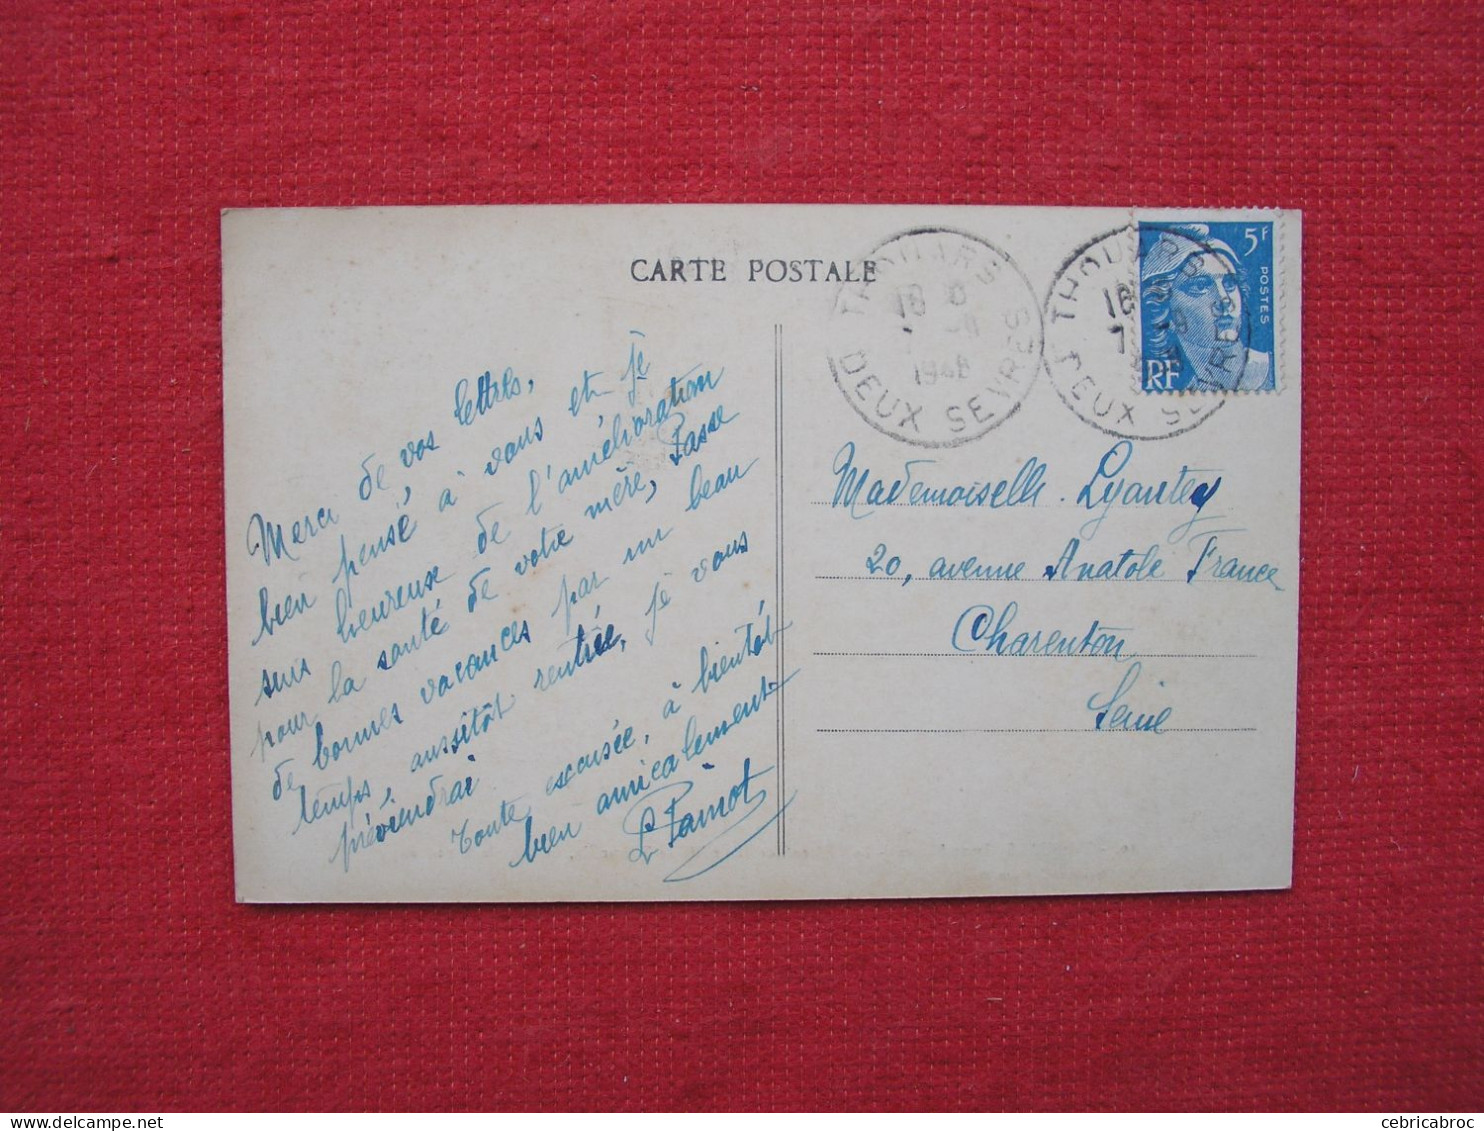 CARTE POSTALE
THOUARS
18
1948
DEUX SEVRES
THOUARS
18
7
DEUX SEVRES
5F
POSTES
RF
Merci de vos lettres,
bien pensé à vous et je
suis heureuse de l'amélioration
pour la santé de votre mère, Passe
de bonnes vacances par un beau
temps, aussitôt rentrée, je vous
préviendrai
Toute excusée, à bientôt
bien amicalement
Mademoiselle Lyautey
20, avenue Anatole France
Charenton
Seine
cebricabroc